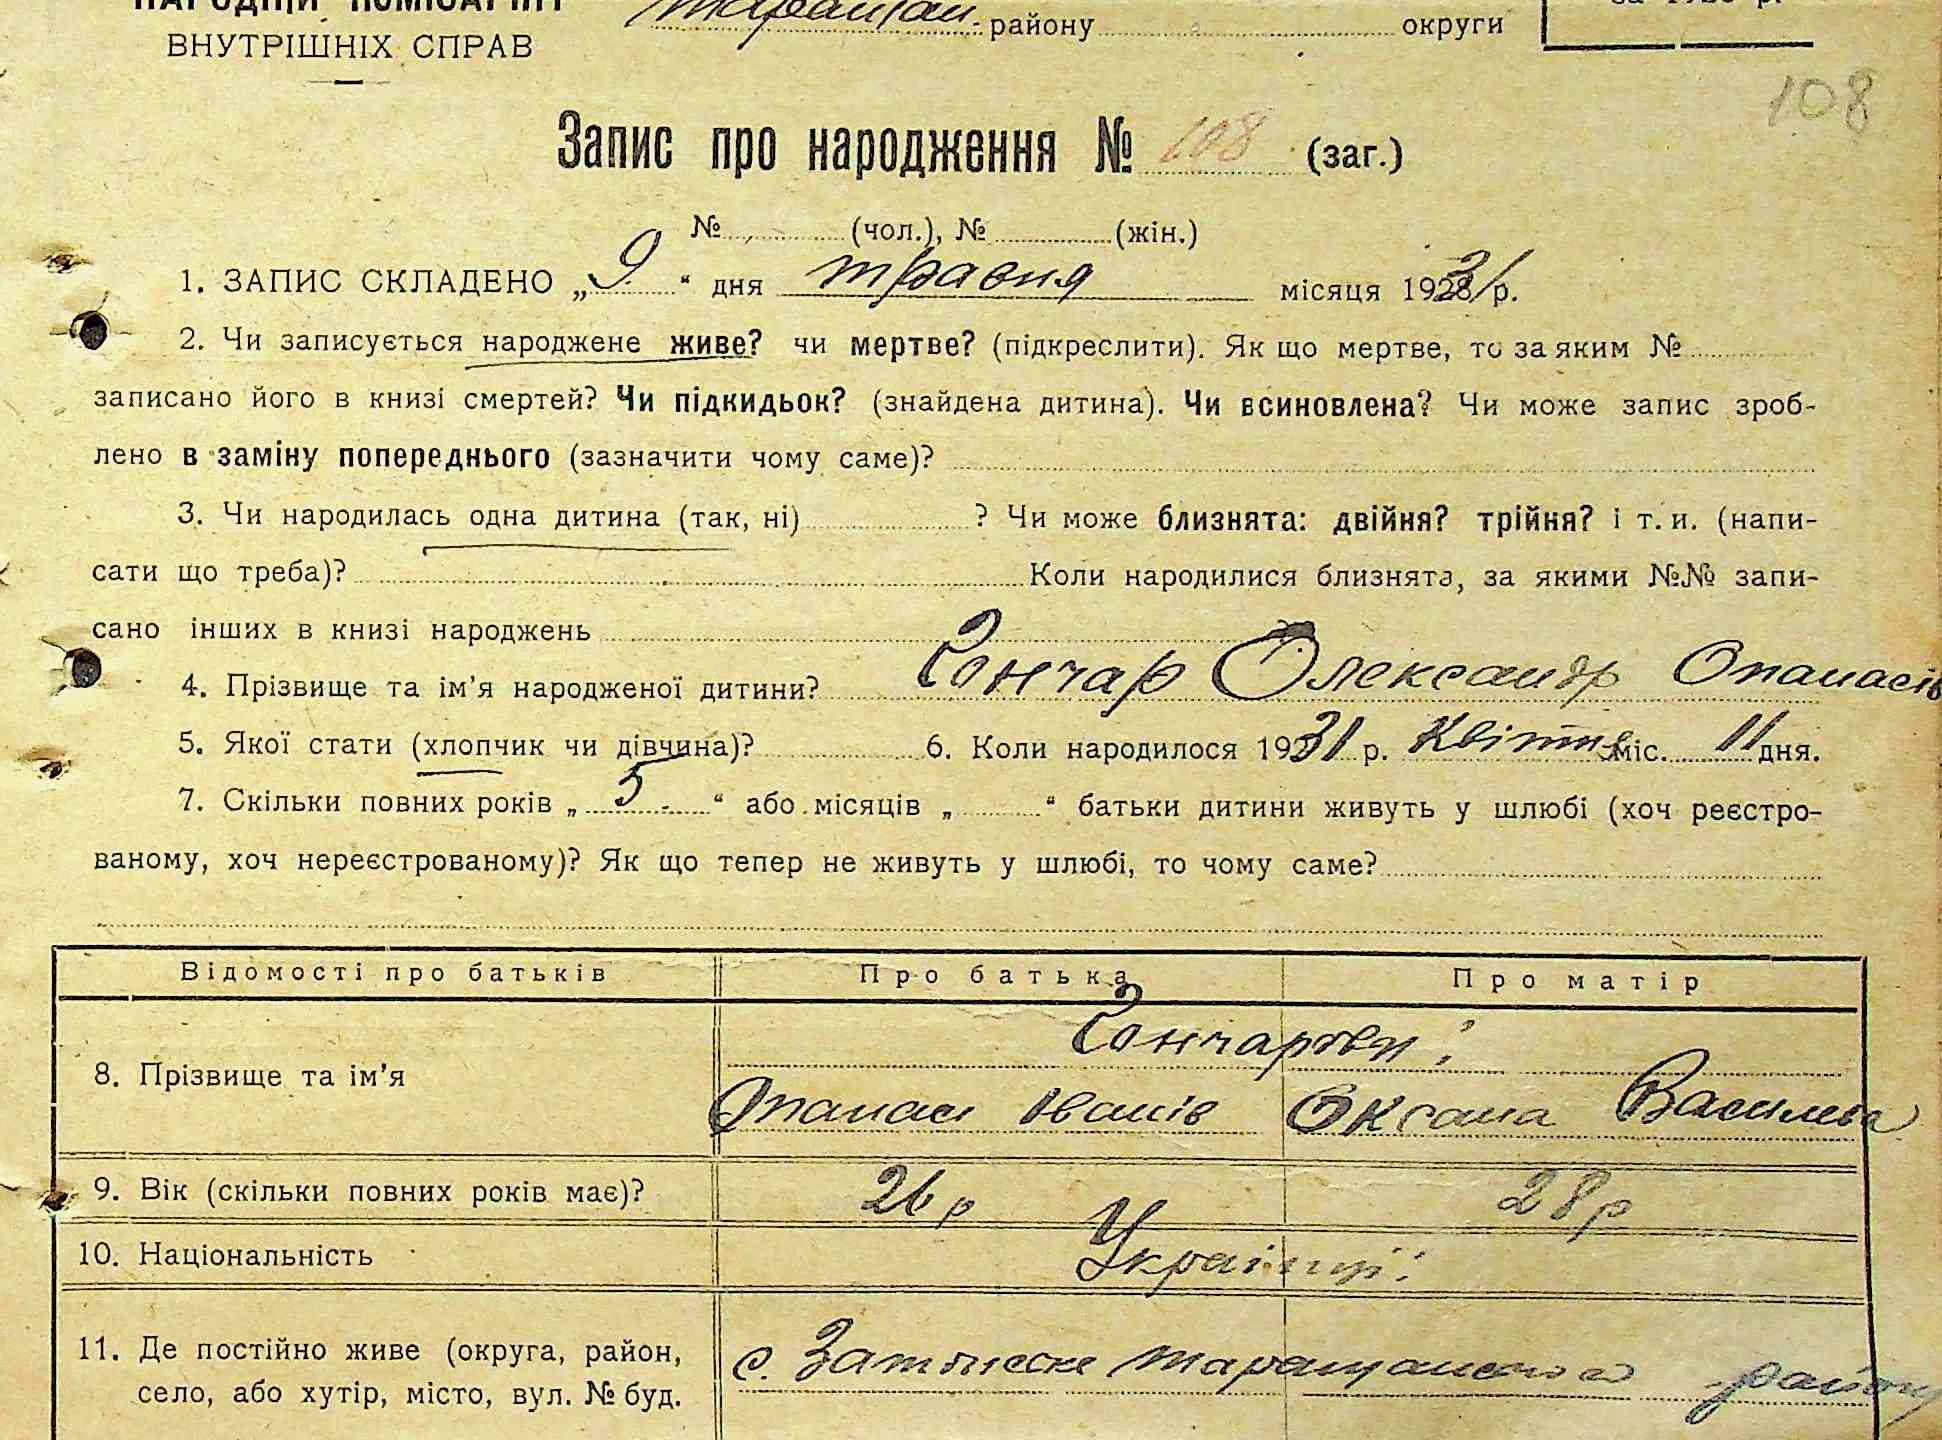 НАРОДНІЙ КОМІСАРІЯТ
ВНУТРІШНІХ СПРАВ
Таращан. району округи
за 192 р.
108
Запис про народження № 108 (заг.)
№ (чол.), № (жін.)
1. ЗАПИС СКЛАДЕНО „9“ дня травня місяця 1931 р.
2. Чи записується народжене живе? чи мертве? (підкреслити). Як що мертве, то за яким №
записано його в книзі смертей? Чи підкидьок? (знайдена дитина). Чи всиновлена? Чи може запис зроб-
лено в заміну попереднього (зазначити чому саме)?
3. Чи народилась одна дитина (так, ні) ? Чи може близнята: двійня? трійня? і т. и. (напи-
сати що треба)? Коли народилися близнята, за якими №№ запи-
сано інших в книзі народжень
4. Прізвище та ім’я народженої дитини? Гончар Олександр Опанасів
5. Якої стати (хлопчик чи дівчина)? 6. Коли народилося 1931 р. Квітня міс. 11 дня.
7. Скільки повних років „5“ або місяців „ “ батьки дитини живуть у шлюбі (хоч реєстро-
ваному, хоч нереєстрованому)? Як що тепер не живуть у шлюбі, то чому саме?
Відомості про батьків Про батька Про матір
Гончарови:
8. Прізвище та ім’я
Опанас Іванів Оксана Василева
9. Вік (скільки повних років має)? 26 р 28 р
10. Національність Українці
11. Де постійно живе (округа, район,
село, або хутір, місто, вул. № буд.
с. Таращанского району